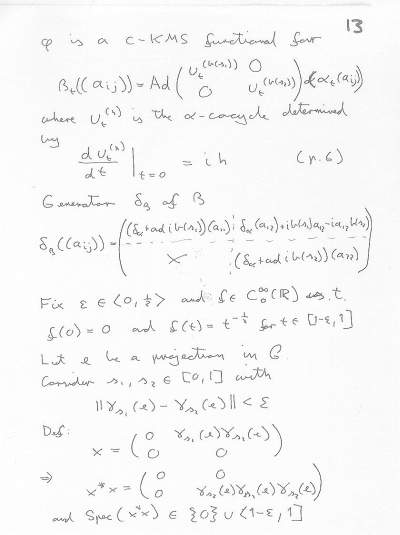 13
φ is a c-KMS functional for
β_t((a_ij)) = Ad ( U_t^(h(s₁)) 0 ; 0 U_t^(h(s₂)) ) α_t(a_ij)
where U_t^(h) is the α-cocycle determined
by
dU_t^(h)/dt |_{t=0} = i h (p.6)
Generator δ_β of β
δ_β((a_ij)) = ( (δ_α + ad i h(s₁))(a₁₁) δ_α(a₁₂) + i h(s₁)a₁₂ - i a₁₂ h(s₂) ; × (δ_α + ad i h(s₂))(a₂₂) )
Fix ε ∈ <0, ½> and f ∈ C₀^∞(ℝ) s.t.
f(0) = 0 and f(t) = t^{-½} for t ∈ [1-ε, 1]
Let e be a projection in G.
Consider s₁, s₂ ∈ [0, 1] with
||γ_{s₁}(e) - γ_{s₂}(e)|| < ε
Def:
x = ( 0 γ_{s₁}(e)γ_{s₂}(e) ; 0 0 )
⇒
x*x = ( 0 0 ; 0 γ_{s₂}(e)γ_{s₁}(e)γ_{s₂}(e) )
and Spec(x*x) ∈ {0} ∪ <1-ε, 1]